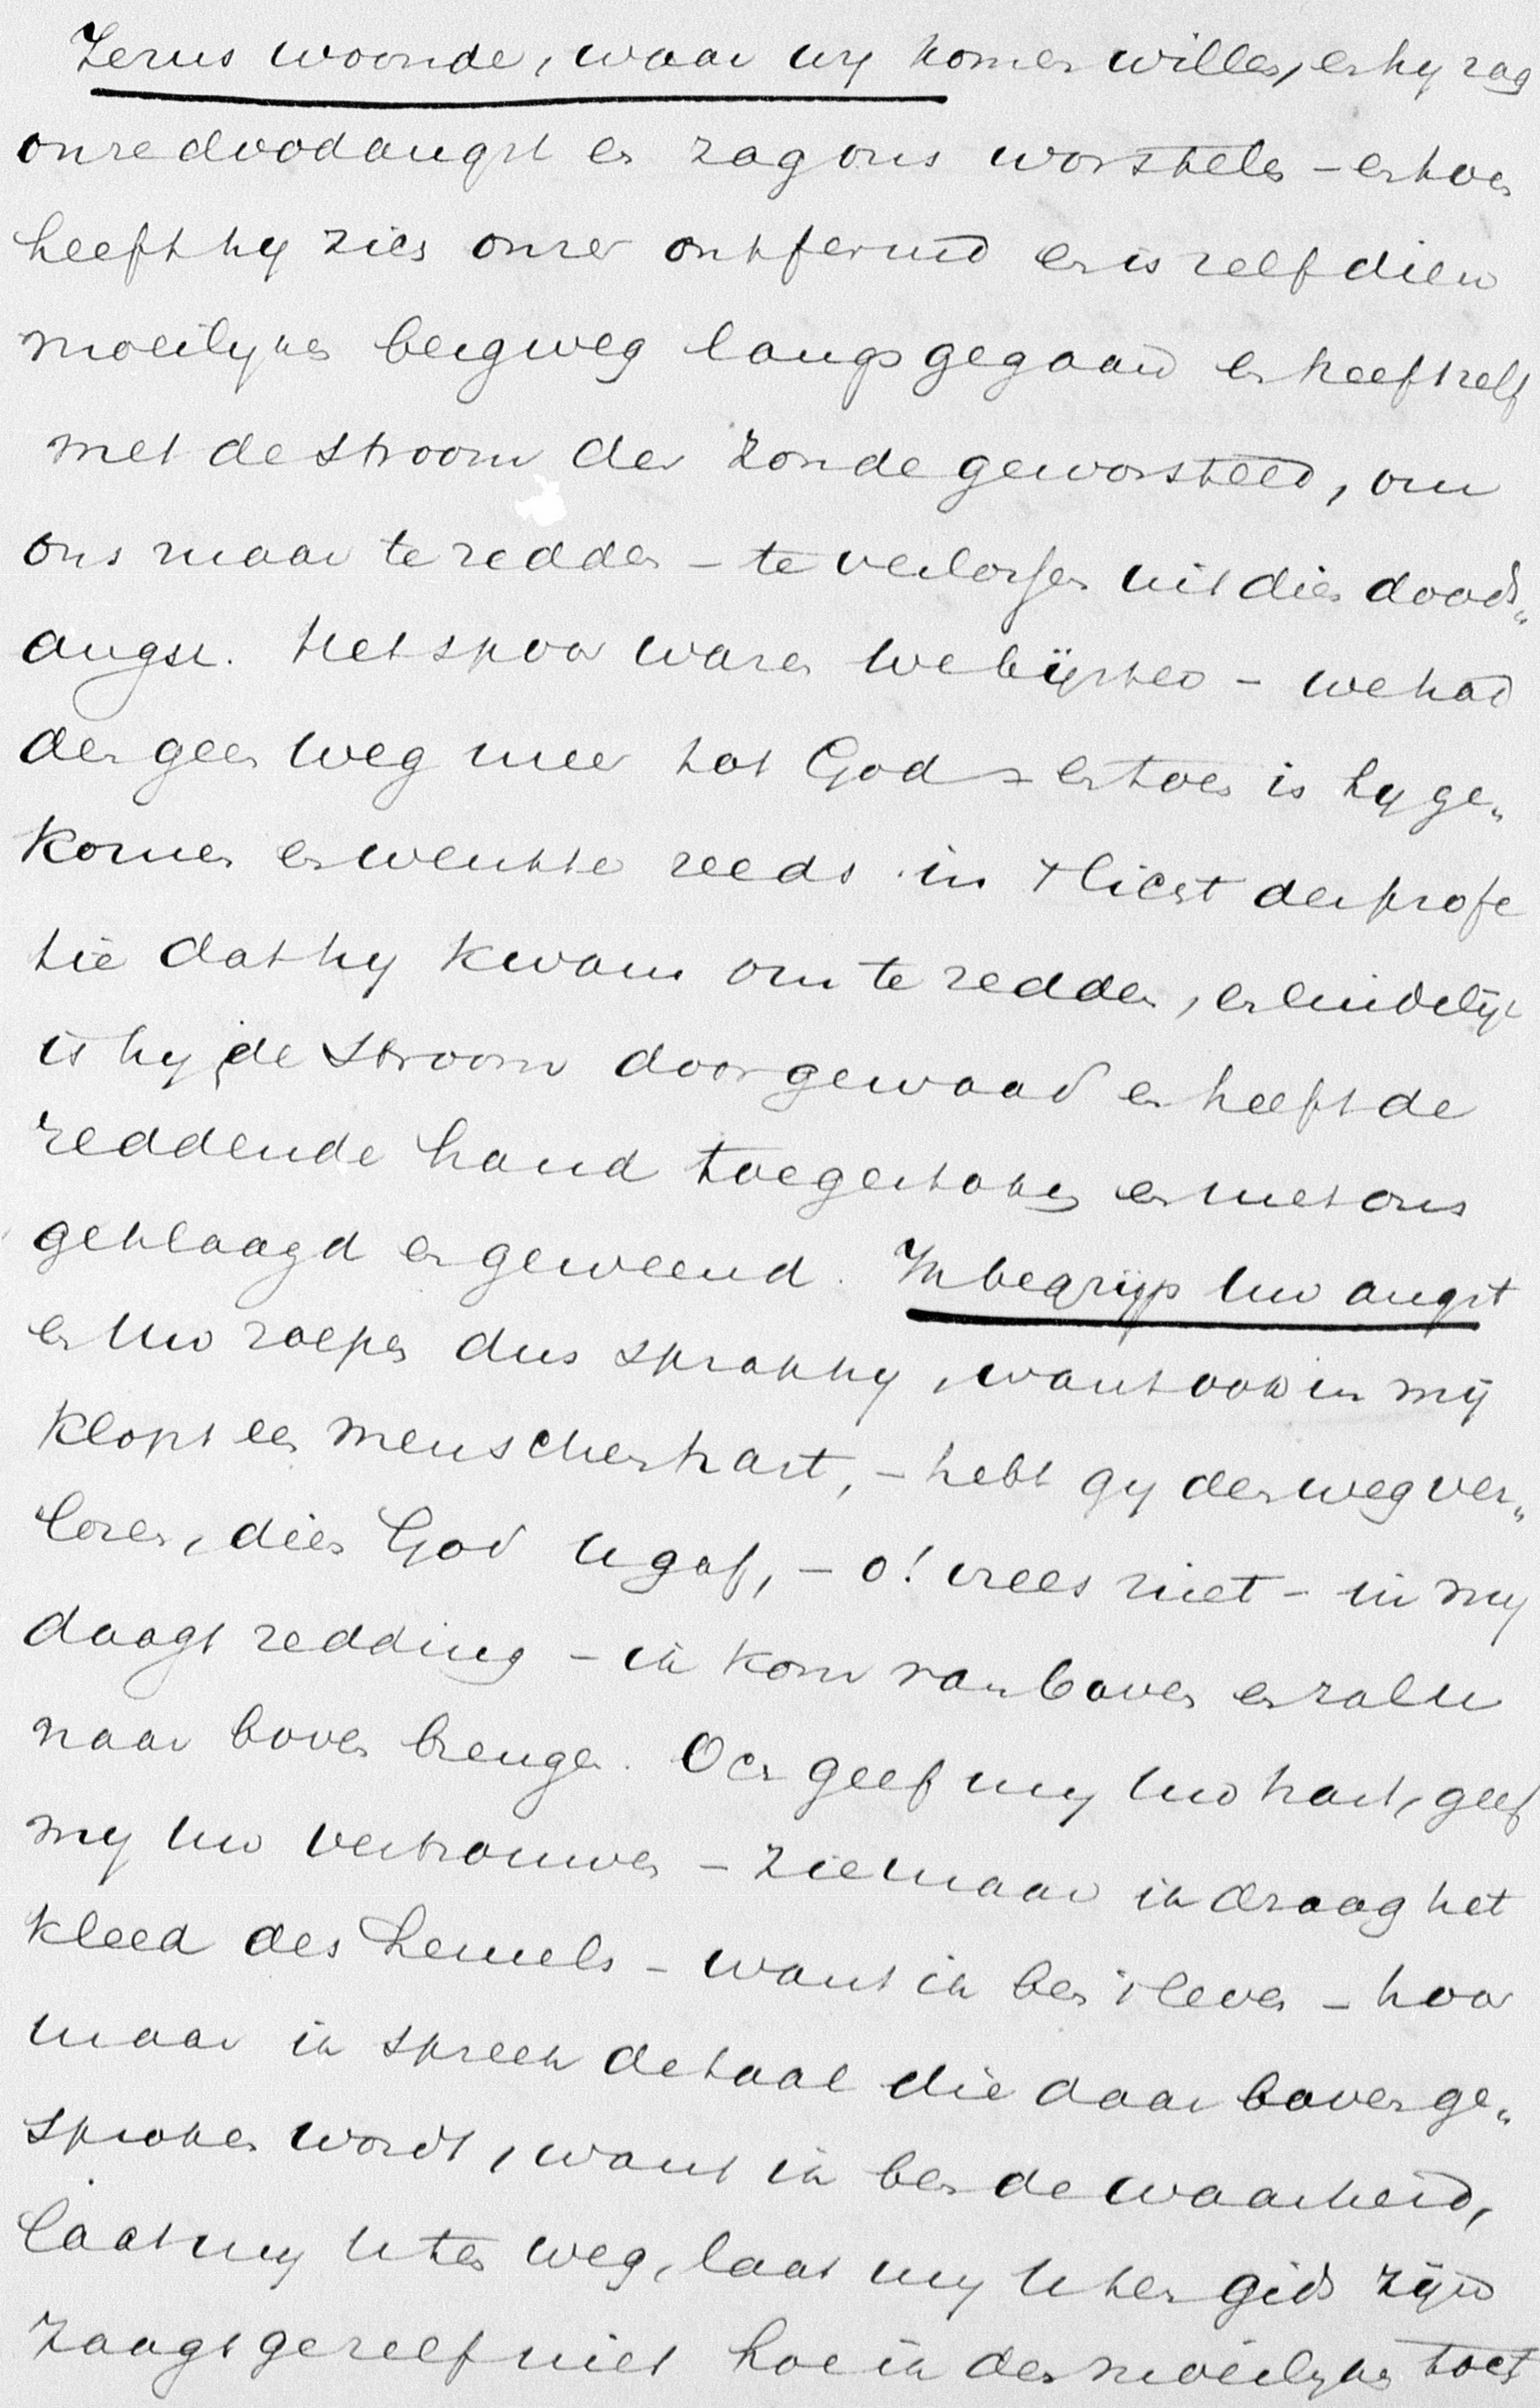 Jezus woonde, waar wy komen willen, en hy zag
onze doodangst en zag ons worstelen – en toen
heeft hy zich onzer ontfermd en is zelf dien
moeilyken bergweg langs gegaan en heeft zelf
met de stroom der zonde geworsteld, om
ons maar te redden – te verlossen uit dien doods„
angst. Het spoor waren we byster – we had
den geen weg meer tot God – en toen is hy ge„
komen en wenkte reeds in 't licht der profe
tie dat hy kwam om te redden, en eindelyk
is hy de stroom doorgewaad en heeft de
reddende hand toegestoken en met ons
geklaagd en geweend. Ik begryp uw angst
en uw roepen dus sprak hy, want ook in my
klopt een menschenhart, – hebt gy den weg ver„
loren, dien God u gaf, – o! vrees niet – in my
daagt redding – ik kom van boven en zal u
naar boven brengen. Och geef my uw hart, geef
my uw vertrouwen – zie maar ik draag het
kleed des hemels – want ik ben 't leven – hoor
maar ik spreek de taal die daar boven ge„
sproken wordt, want ik ben de waarheid,
laat my u ten weg, laat my u ten gids zyn
zaagt ge zelf niet hoe ik den moeilyken tocht